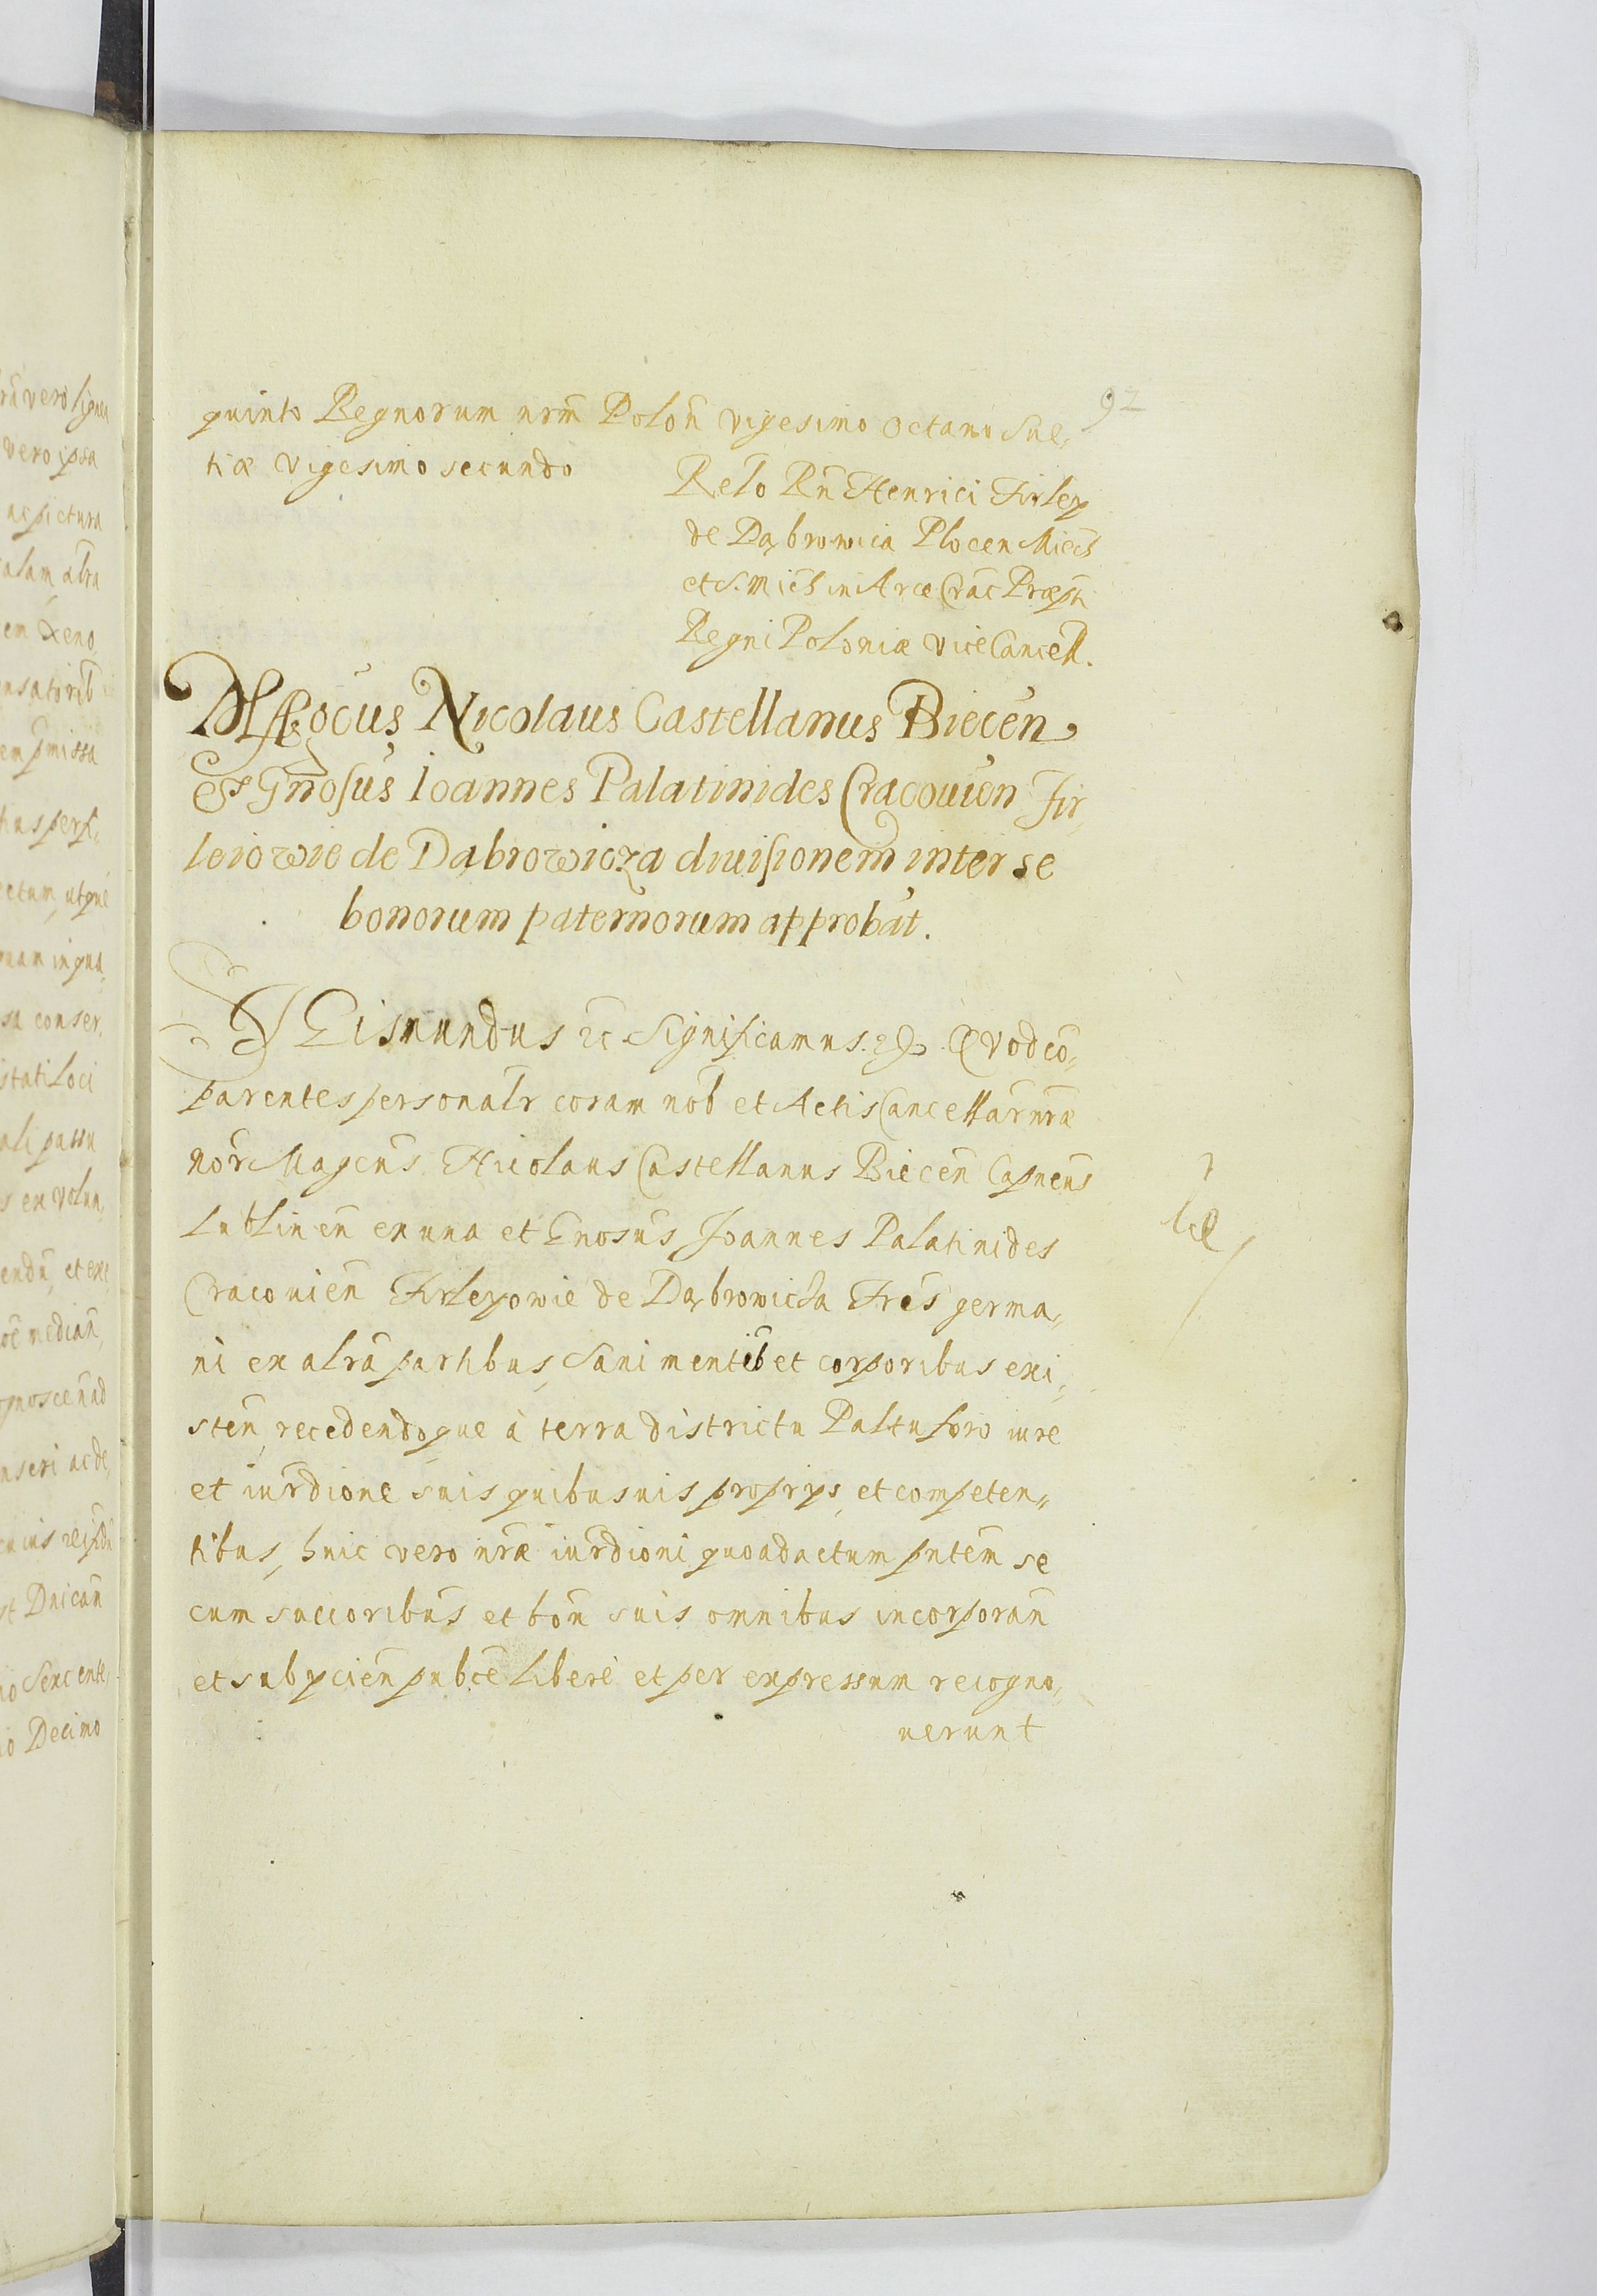 92
quinto Regnorum nrm̃ Polon̄ Vigesimo Octauo Sue,
tiæ Vigesimo secundo
Relo Rn̄ Henrici Firley
de Dąbrowica Plocen Miech
et S. Mich in Arce Crac̄ Præpti
Regni Poloniæ ViceCancell.
Nicolaus Castellanus Biecen̄
et Gnosus Ioannes Palatinides Cracouien̄ Fir,
leiowie de Dąbrowicza diuisionem inter se
bonorum paternorum approbāt.
SIGismundus &c Significamus. &c. Quod cō,
parentes personalr coram nob̄ et Actis Cancellar nrā
nor̄ Magcus Nicolaus Castellanus Biecen̄ Capneus
Lublinen̄ ex una et Gnosus Joannes Palatinides
Cracouien̄ Firleyowie de Dąbrowicza Frēs germa,
ni ex alrā partibus, Sani mentib̄ et corporibus exi,
sten̄, recedendoque à terra districtu Paltu foro iure
et iurdione suis quibusuis proprys, et competen,
tibus, huic vero nræ iurdioni quoad actum pn̄tem se
cum succoribus et bon̄ suis omnibus incorporan̄
et subycien̄ pubce liberè et per expressum recogno,
uerunt